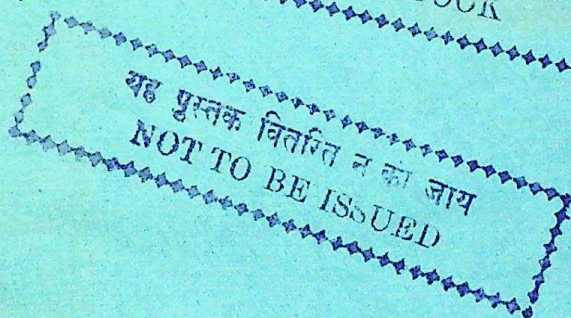 यह पुस्तक वितरित न की जाय
NOT TO BE ISSUED